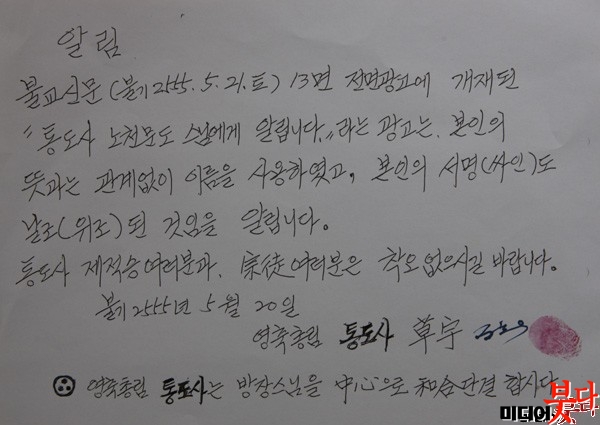 알림
불교신문(불기2555.5.21.토) 13면 전면광고에 개재된
"통도사 노천문도 스님에게 알립니다."라는 광고는, 본인의
뜻과는 관계없이 이름을 사용하였고, 본인의 서명(싸인)도
날조(위조)된 것임을 알립니다.
통도사 제적승여러분과, 宗徒여러분은 착오없으시길 바랍니다.
불기2555년 5월 20일
영축총림 통도사 草宇
영축총림 통도사는 방장스님을 中心으로 和合단결 합시다
미디어붓다